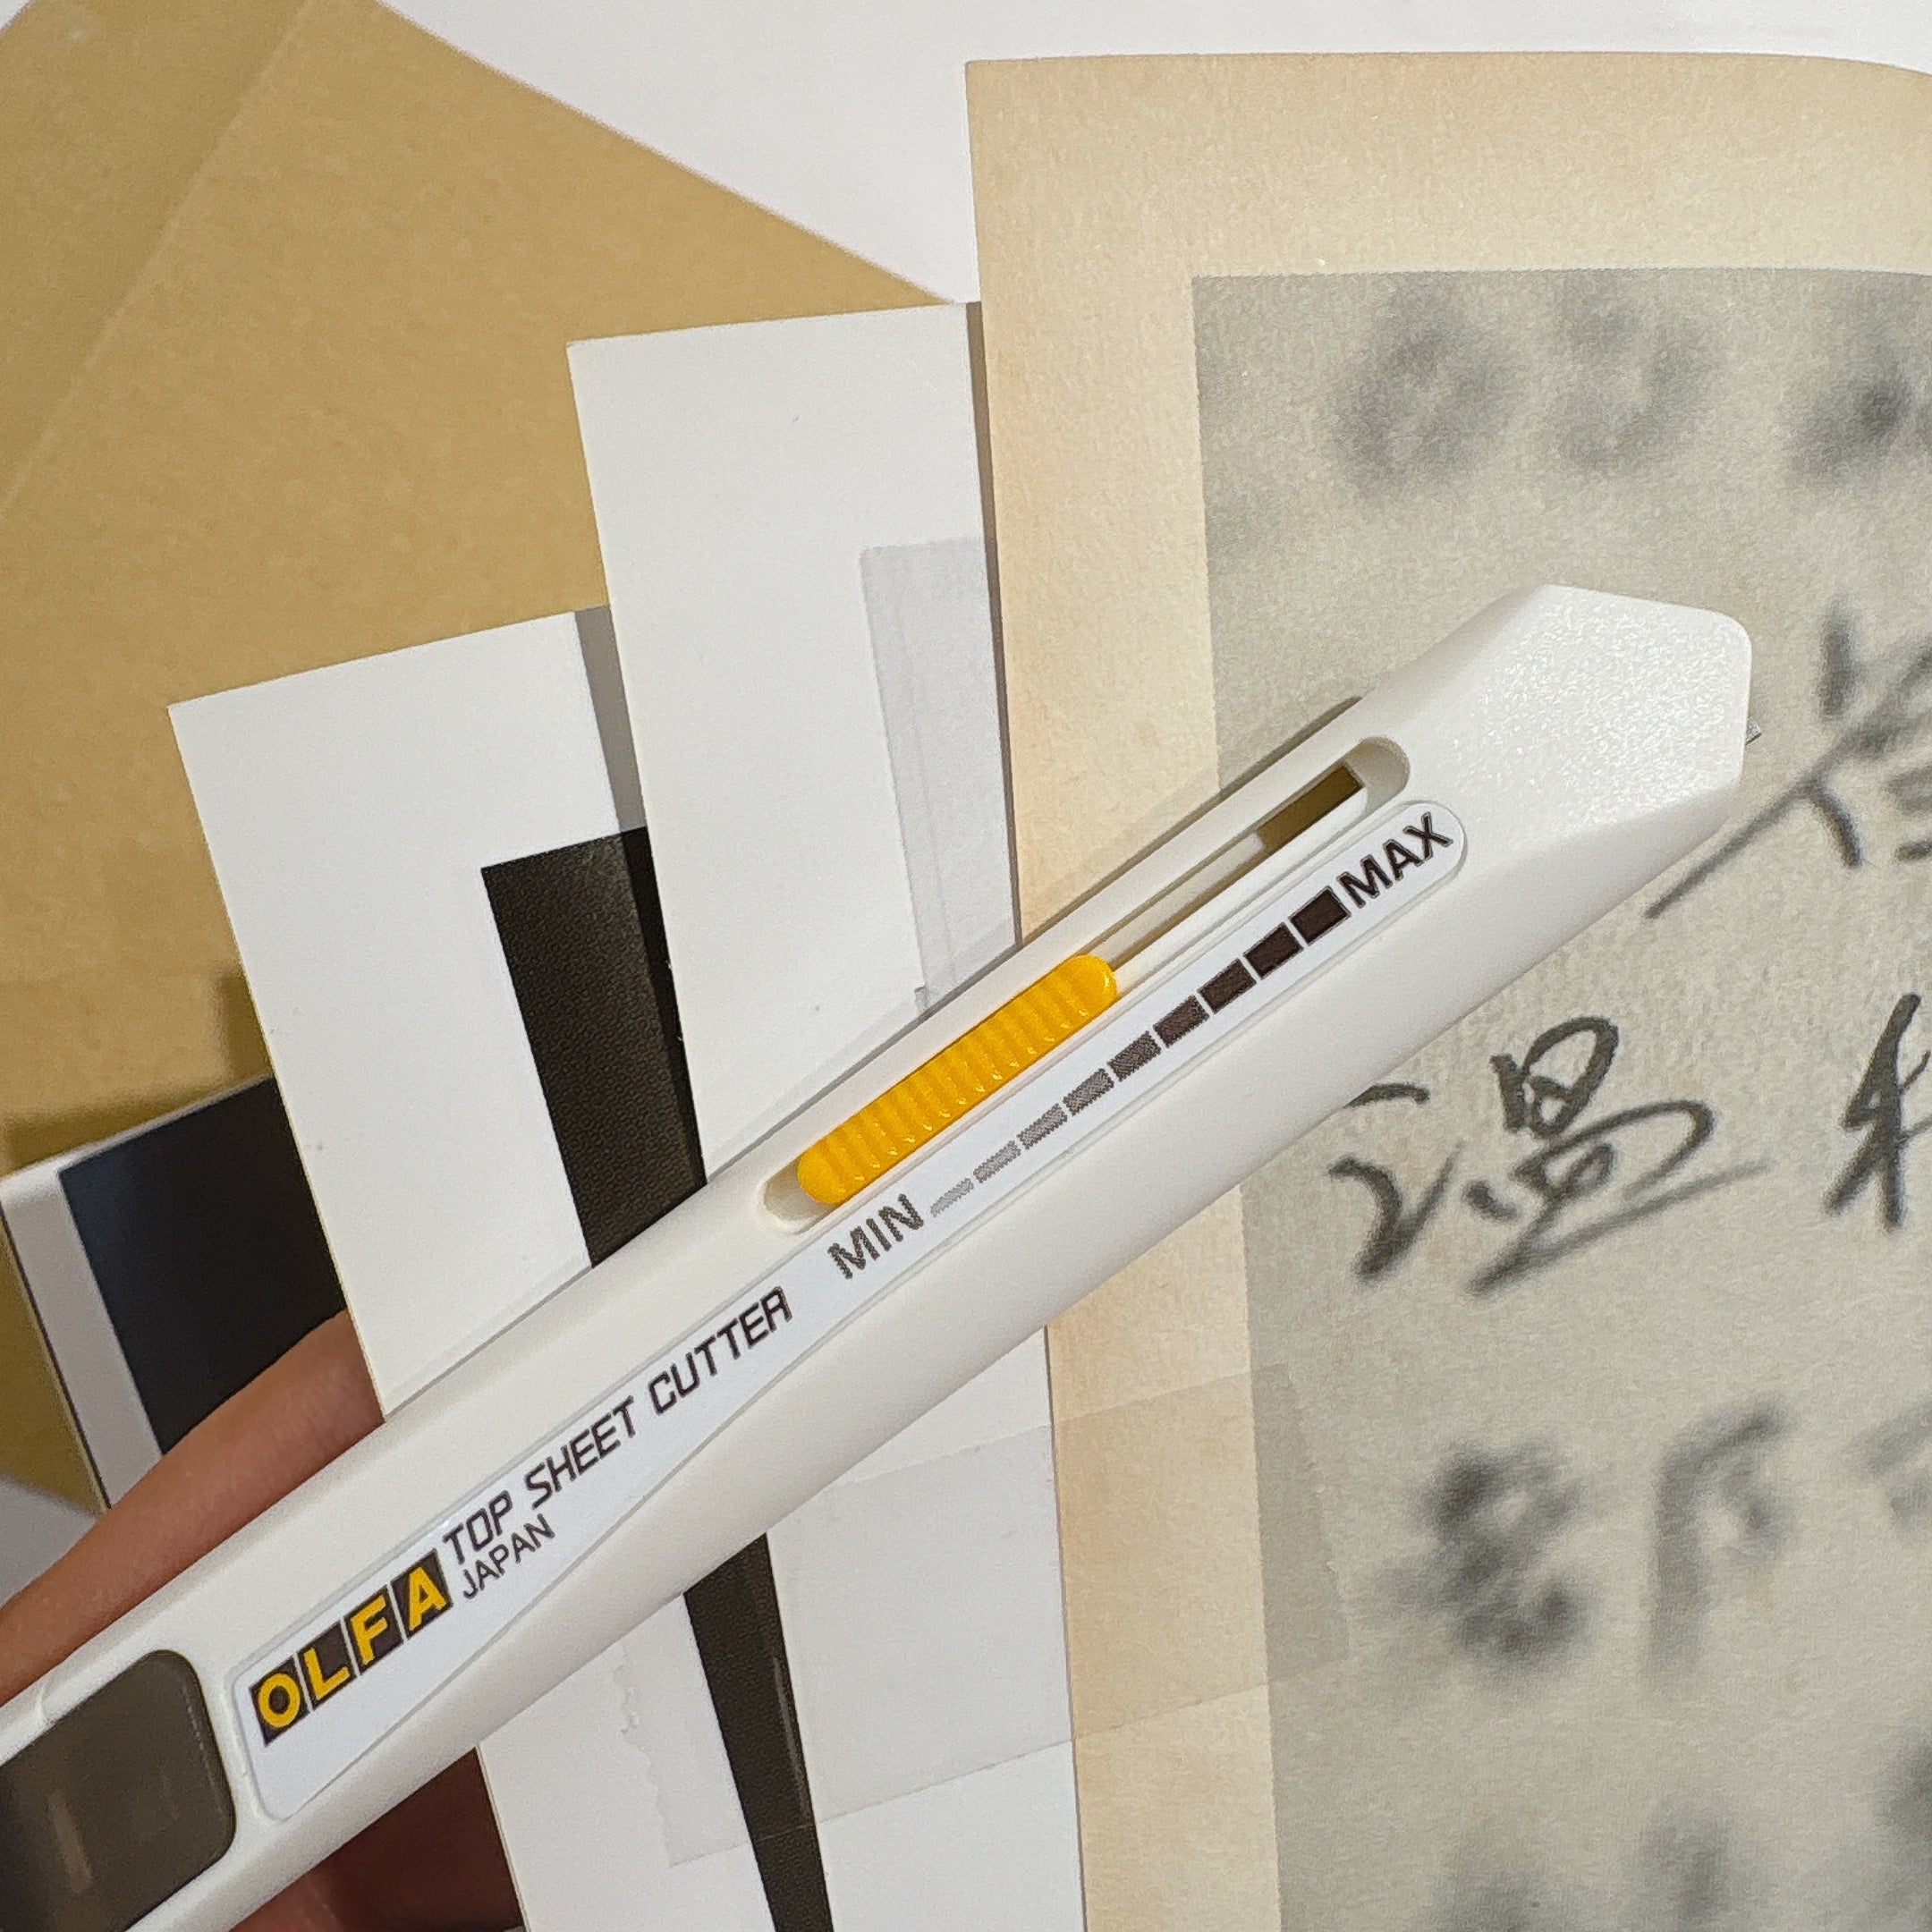 OLFA TOP SHEET CUTTER
JAPAN
MIN MAX
温